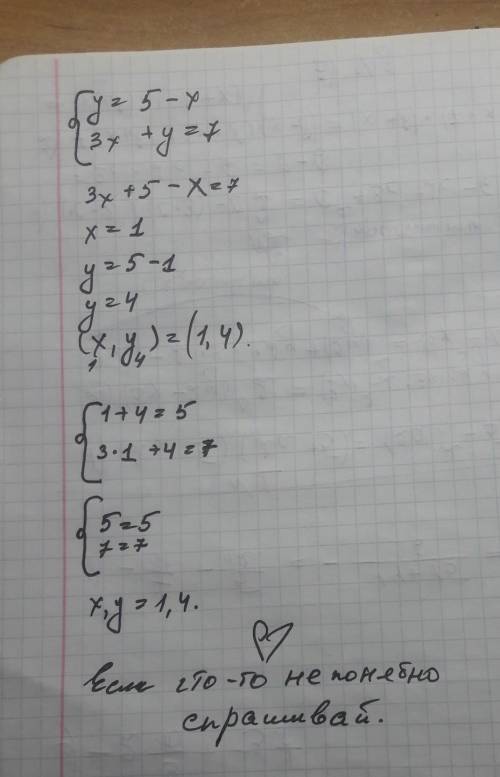 {y = 5 - x
{3x + y = 7
3x + 5 - x = 7
x = 1
y = 5 - 1
y = 4
(x, y) = (1, 4).
1 4
{1 + 4 = 5
{3 · 1 + 4 = 7
{5 = 5
{7 = 7
x, y = 1, 4.
Если что-то не понетно
спрашивай.